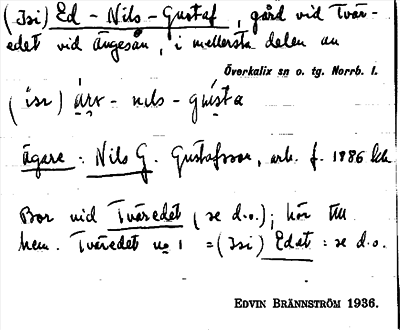 (Isi) Ed - Nils - Gustaf, gård vid Tvär-
edet vid ängesån, i mellersta delen av
Överkalix sn o. tg. Norrb. l.
(isi) - nils - gusta
ägare: Nils G. Gustafsson, arb. f. 1886
Bor vid Tväredet (se d.o.); hör till
hem. Tväredet no 1 = (Isi) Edet: se d.o.
EDVIN BRÄNNSTRÖM 1936.